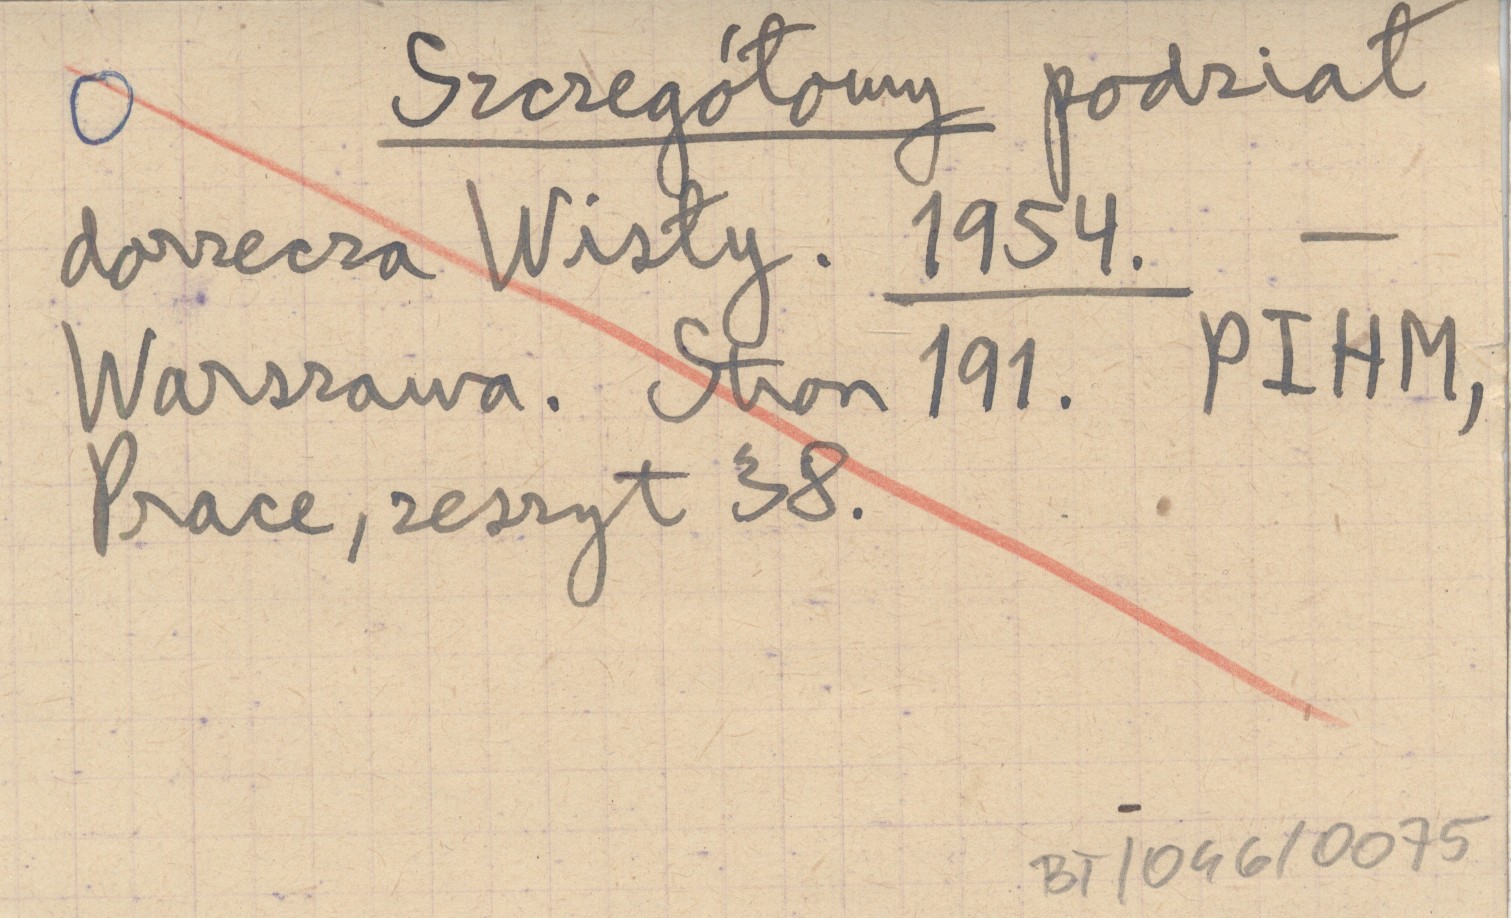 O Szczegółowy podział
dorzecza Wisły. 1954. —
Warszawa. Stron 191. PIHM,
Prace, zeszyt 38.
BT/046/0075